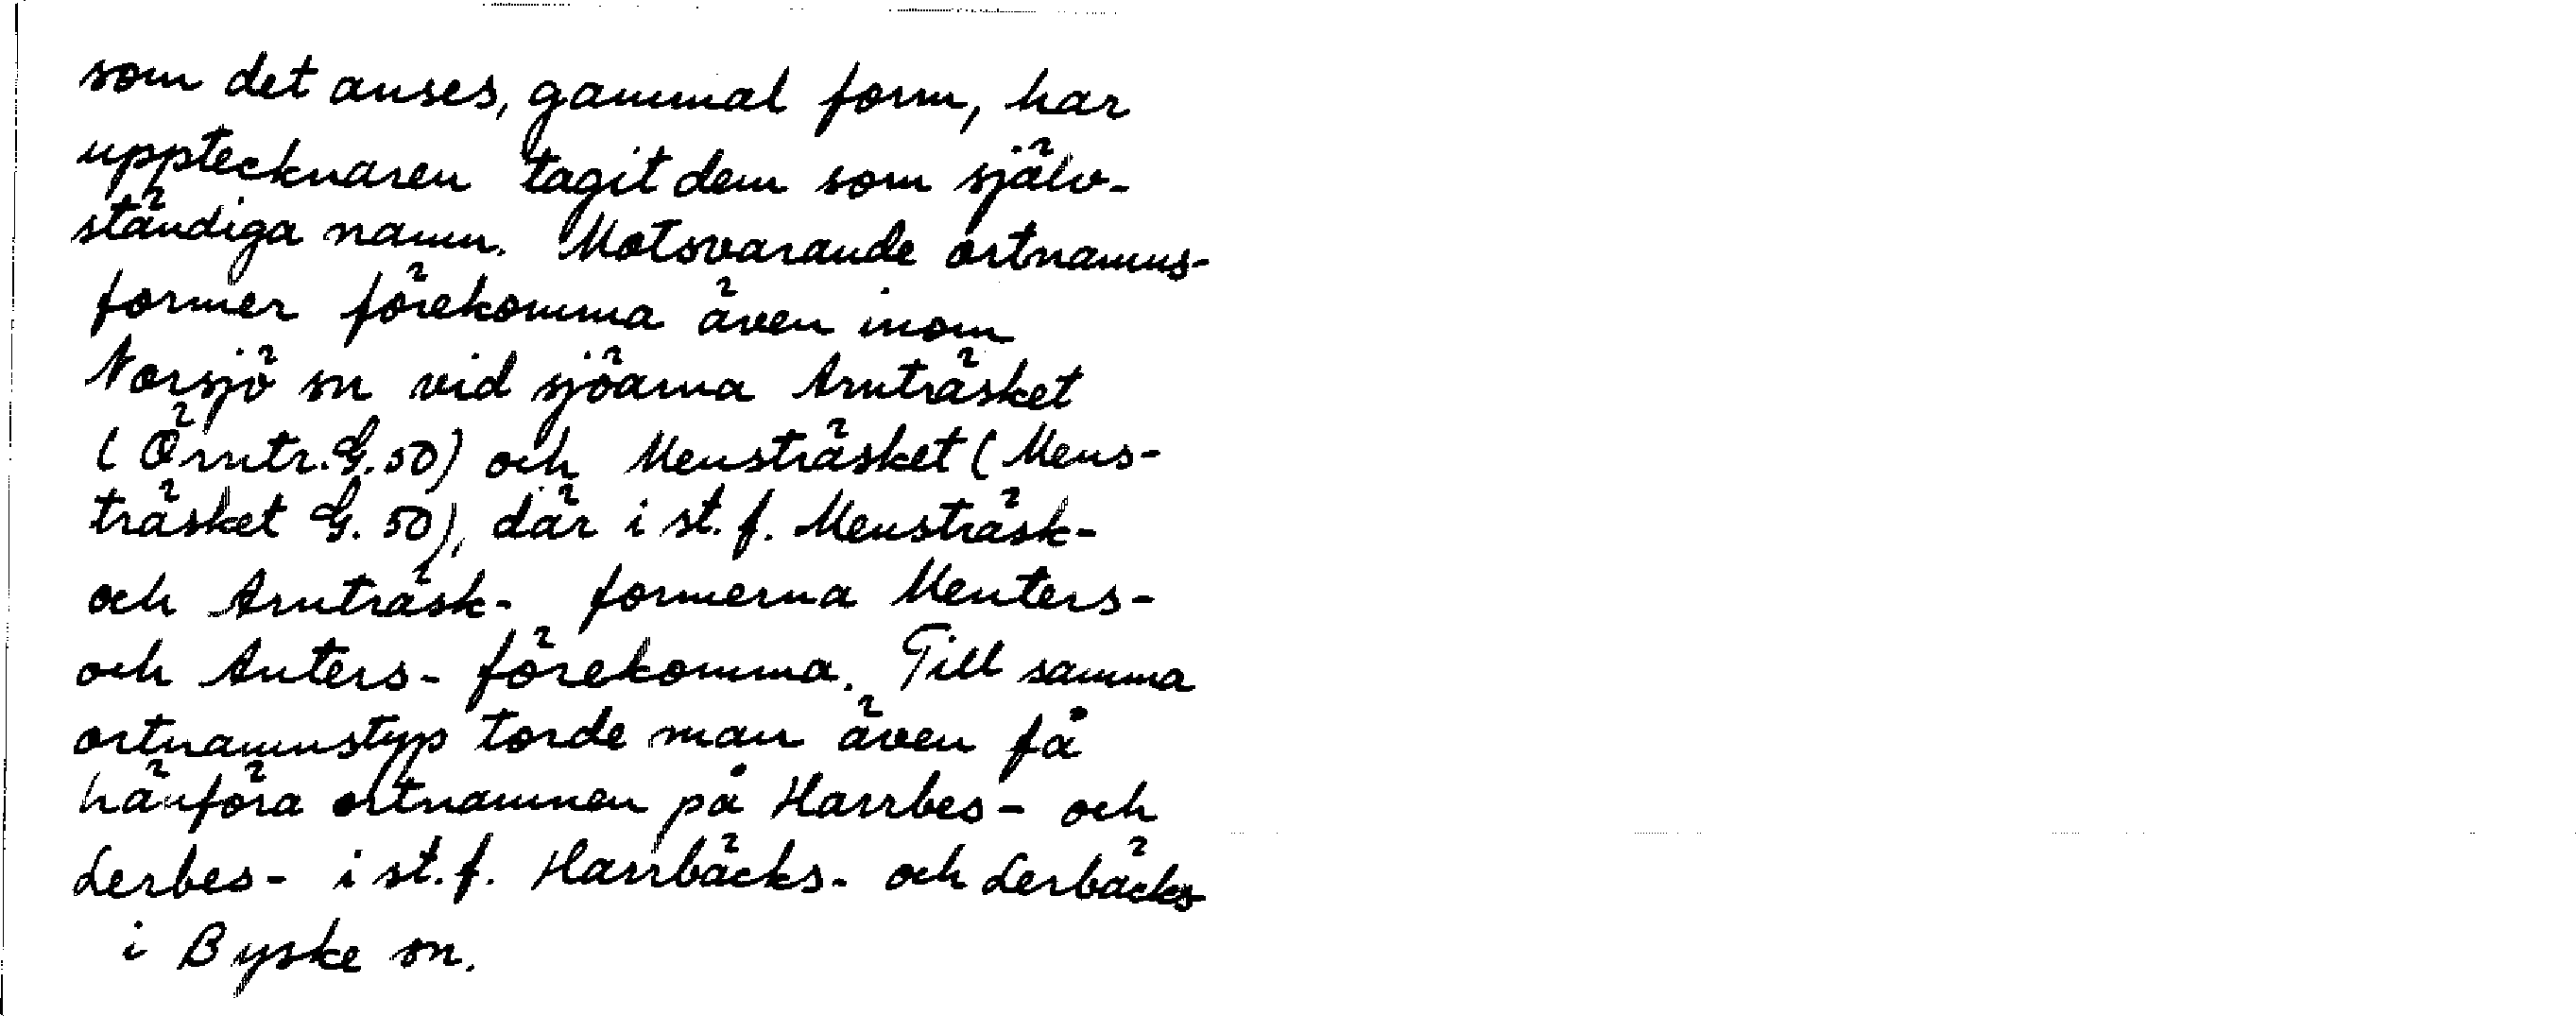 som det anses, gammal form, har
upptecknaren tagit dem som själv-
ständiga namn. Motsvarande ortnamns-
former förekomma även inom
Norsjö sn vid sjöarna Arnträsket
(Örntr. G. 50) och Mensträsket (Mens-
träsket G. 50), där i st. f. Mensträsk-
och Arnträsk- formerna Menters-
och Anters- förekomma. Till samma
ortnamnstyp torde man även få
hänföra ortnamnen på Harrbes- och
Lerbes- i st. f. Harrbäcks- och Lerbäcks
i Byske sn.